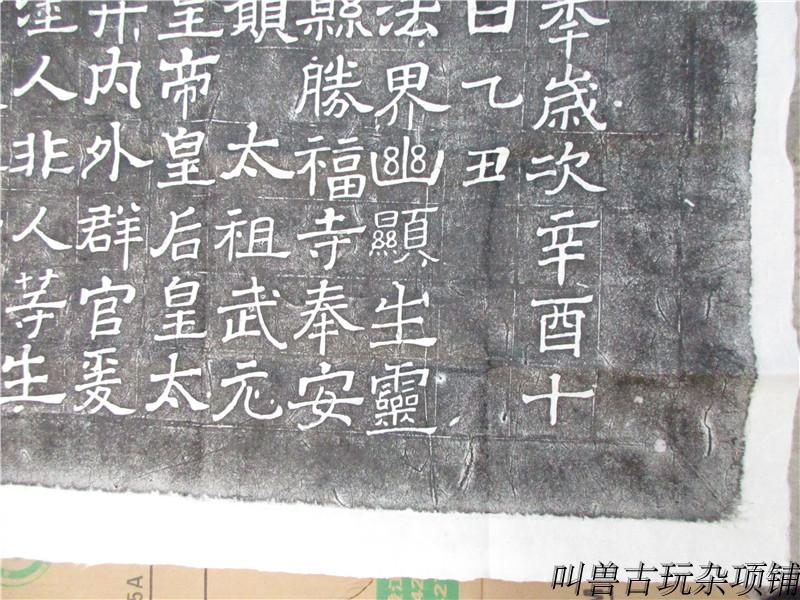 秊歲次辛酉十
日乙丑
法界幽顯生靈
縣勝福寺奉安
願太祖武元
皇帝皇后皇太
内外群官爰
塗人非人等生
5A
叫兽古玩杂项铺